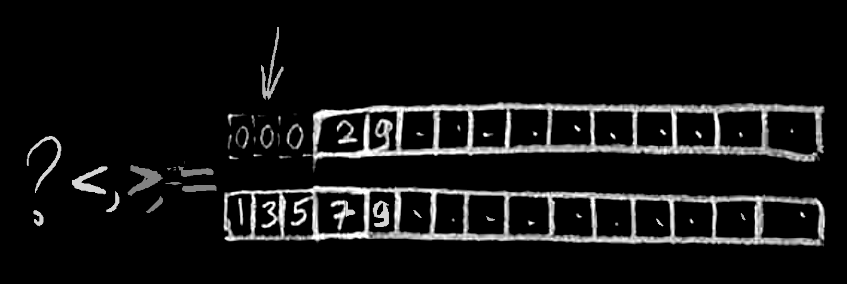 0 0 0 2 9 . . . . . . . . . .
? <, >, =
1 3 5 7 9 . . . . . . . . . .